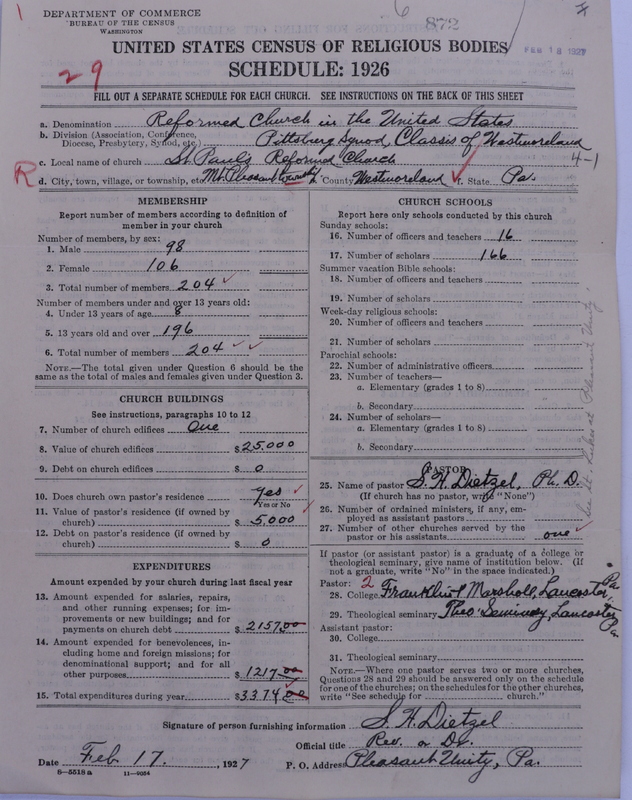 DEPARTMENT OF COMMERCE
BUREAU OF THE CENSUS
WASHINGTON
6
872
FEB 18 1927
UNITED STATES CENSUS OF RELIGIOUS BODIES
SCHEDULE: 1926
29
FILL OUT A SEPARATE SCHEDULE FOR EACH CHURCH. SEE INSTRUCTIONS ON THE BACK OF THIS SHEET
a. Denomination Reformed Church in the United States
b. Division (Association, Conference, Diocese, Presbytery, Synod, etc.) Pittsburg Synod, Classis of Westmoreland
4-1
c. Local name of church St. Paul's Reformed Church
R
d. City, town, village, or township, etc. Mt. Pleasant township County Westmoreland f. State Pa.
MEMBERSHIP
Report number of members according to definition of
member in your church
Number of members, by sex:
1. Male 98
2. Female 106
3. Total number of members 204
Number of members under and over 13 years old:
4. Under 13 years of age 8
5. 13 years old and over 196
6. Total number of members 204
NOTE.—The total given under Question 6 should be
the same as the total of males and females given under Question 3.
CHURCH BUILDINGS
See instructions, paragraphs 10 to 12
7. Number of church edifices One
8. Value of church edifices $25.000
9. Debt on church edifices $ 0
10. Does church own pastor's residence yes
Yes or No
11. Value of pastor's residence (if owned by
church) $ 5.000
12. Debt on pastor's residence (if owned by
church) $ 0
EXPENDITURES
Amount expended by your church during last fiscal year
13. Amount expended for salaries, repairs,
and other running expenses; for im-
provements or new buildings; and for
payments on church debt $2157.00
14. Amount expended for benevolences, in-
cluding home and foreign missions; for
denominational support; and for all
other purposes $1217.00
15. Total expenditures during year $3374.00
CHURCH SCHOOLS
Report here only schools conducted by this church
Sunday schools:
16. Number of officers and teachers 16
17. Number of scholars 166
Summer vacation Bible schools:
18. Number of officers and teachers
19. Number of scholars
Week-day religious schools:
20. Number of officers and teachers
21. Number of scholars
Parochial schools:
22. Number of administrative officers
23. Number of teachers—
a. Elementary (grades 1 to 8)
b. Secondary
24. Number of scholars—
a. Elementary (grades 1 to 8)
b. Secondary
PASTOR
25. Name of pastor S. H. Dietzel, Ph. D.
(If church has no pastor, write "None")
26. Number of ordained ministers, if any, em-
ployed as assistant pastors
27. Number of other churches served by the
pastor or his assistants one
If pastor (or assistant pastor) is a graduate of a college or
theological seminary, give name of institution below. (If
not a graduate, write "No" in the space indicated.)
Pastor: 2
28. College Franklin & Marshall, Lancaster, Pa.
29. Theological seminary Theo. Seminary, Lancaster Pa.
Assistant pastor:
30. College
31. Theological seminary
NOTE.—Where one pastor serves two or more churches,
Questions 28 and 29 should be answered only on the schedule
for one of the churches; on the schedules for the other churches,
write "See schedule for church."
Signature of person furnishing information S. H. Dietzel
Official title Rev. or Dr.
Date Feb 17, 1927 P. O. Address Pleasant Unity, Pa.
8—5518 a 11—9054